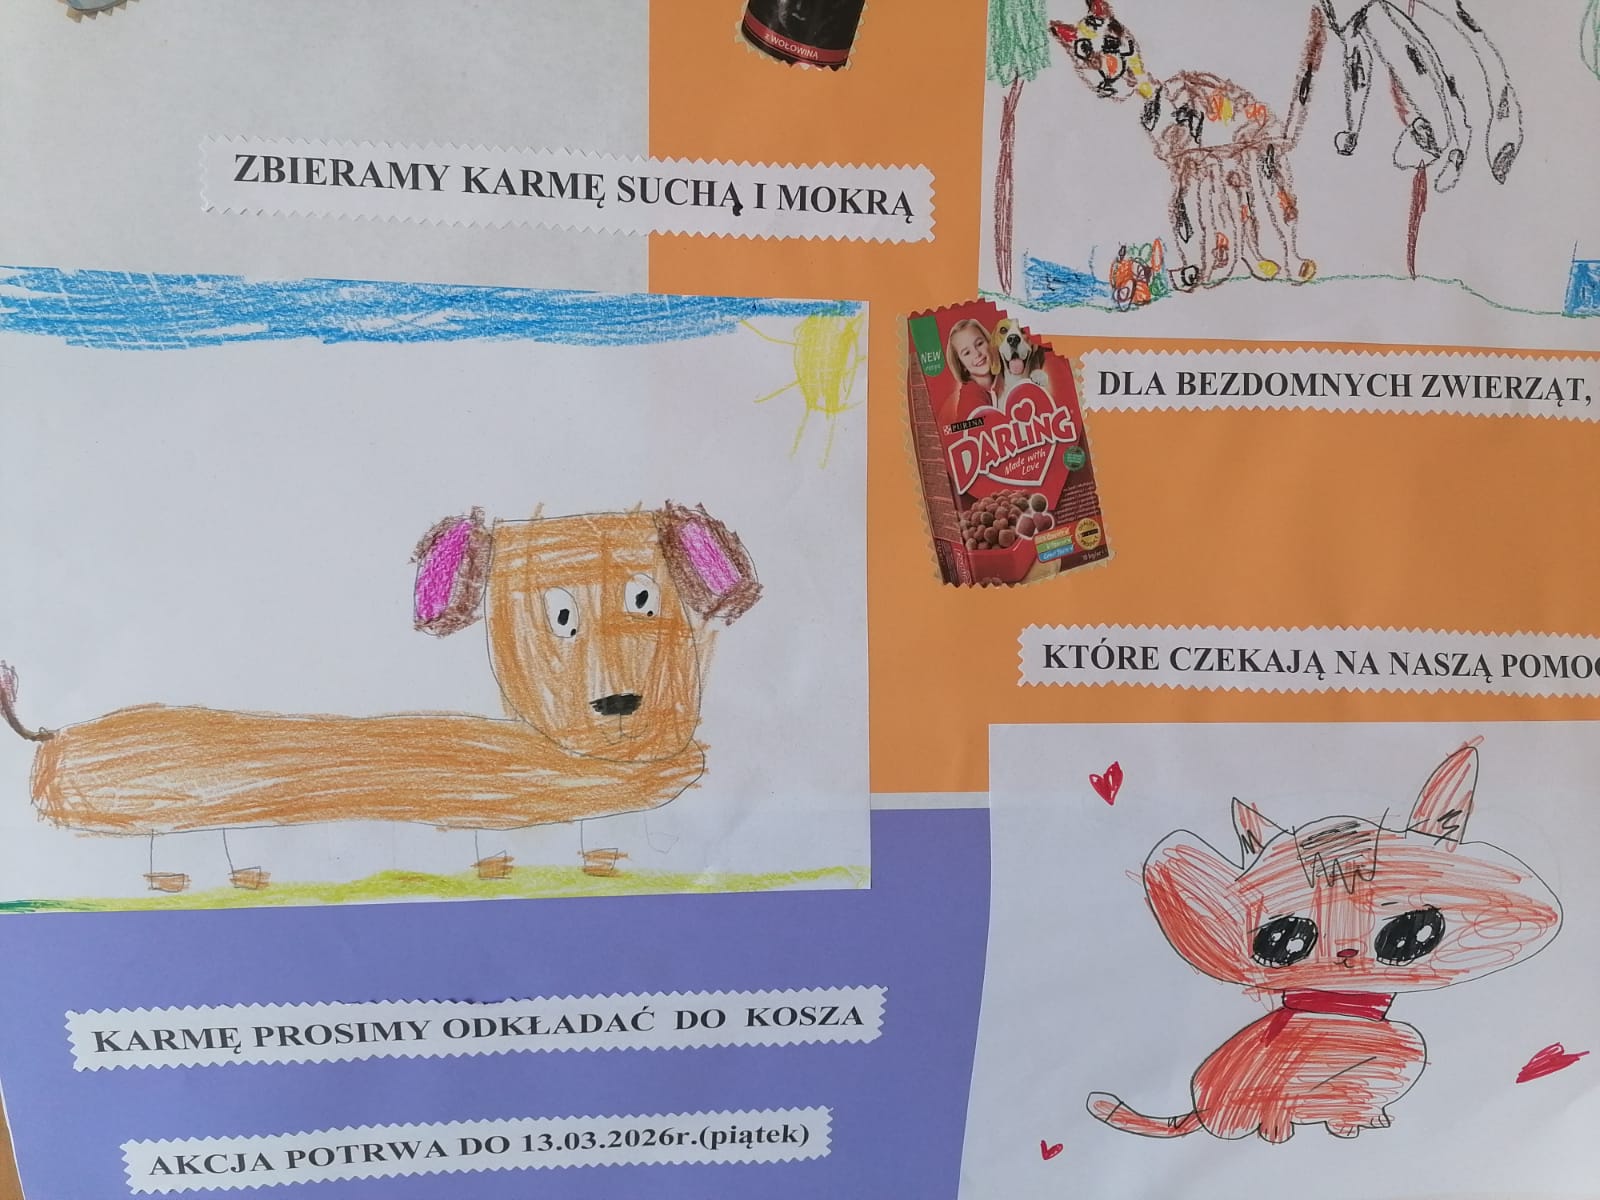 Z WOŁOWINĄ
ZBIERAMY KARMĘ SUCHĄ I MOKRĄ
NEW
PURINA
DARLING
Made with
Love
DLA BEZDOMNYCH ZWIERZĄT,
KTÓRE CZEKAJĄ NA NASZĄ
KARMĘ PROSIMY ODKŁADAĆ DO KOSZA
AKCJA POTRWA DO 13.03.2026r.(piątek)